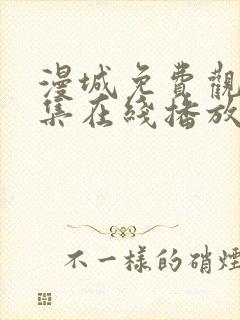 漫城免費觀
集在綫播放
不一樣的硝煙